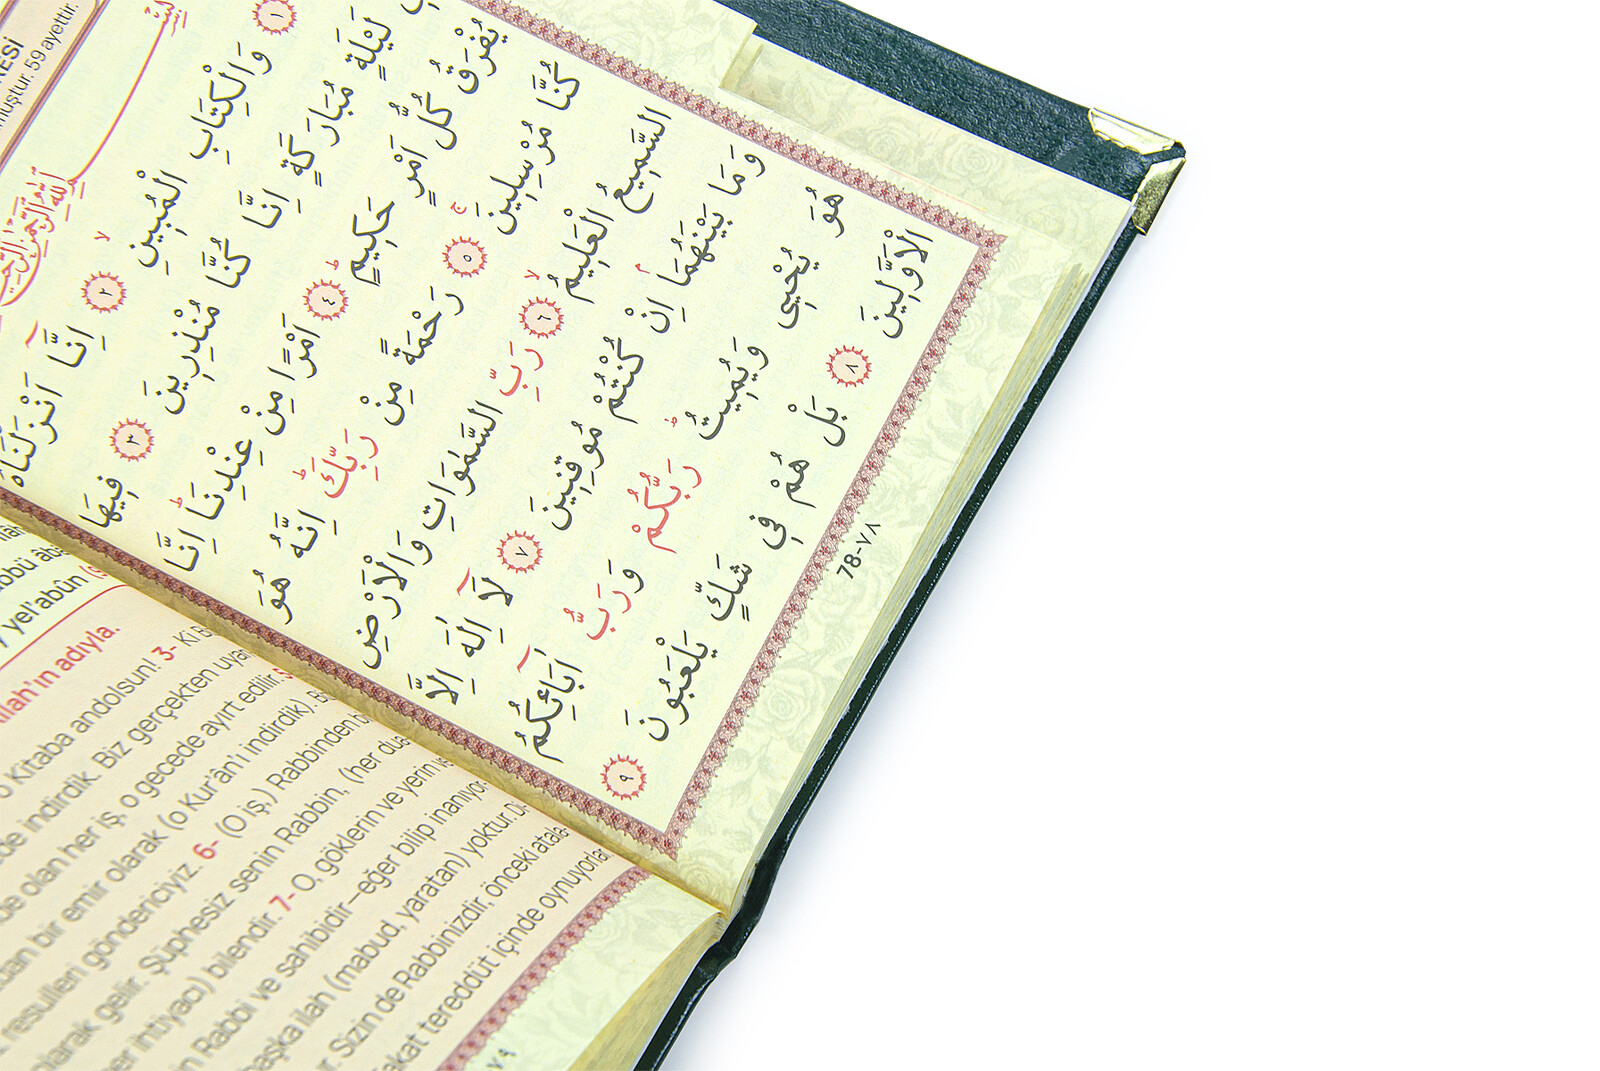 59 ayettir.
بِسْمِ اللّٰهِ الرَّحْمٰنِ الرَّحِيمِ
١ وَالْكِتَابِ الْمُبِينِ ٢ اِنَّٓا اَنْزَلْنَاهُ
لَيْلَةٍ مُبَارَكَةٍ اِنَّا كُنَّا مُنْذِرِينَ ٣ فِيهَا
يُفْرَقُ كُلُّ اَمْرٍ حَكِيمٍ ٤ اَمْرًا مِنْ عِنْدِنَا اِنَّا
كُنَّا مُرْسِلِينَ ٥ رَحْمَةً مِنْ رَبِّكَ اِنَّهُ هُوَ
السَّمِيعُ الْعَلِيمُ ٦ رَبِّ السَّمٰوَاتِ وَالْاَرْضِ
وَمَا بَيْنَهُمَا اِنْ كُنْتُمْ مُوقِنِينَ ٧ لَٓا اِلٰهَ اِلَّا
هُوَ يُحْيِى وَيُمِيتُ رَبُّكُمْ وَرَبُّ اٰبَٓائِكُمُ
الْاَوَّلِينَ ٨ بَلْ هُمْ فِى شَكٍّ يَلْعَبُونَ ٩
78-٧٨
yel'abûn
adıyla.
o Kitaba andolsun! 3- Ki
indirdik. Biz gerçekten
olan her iş, o gecede ayırt edilir.
bir emir olarak (o Kur'ân'ı indirdik).
resulleri göndericiyiz. 6- (O iş,) Rabbinden
olarak gelir. Şüphesiz senin Rabbin, (her
ihtiyacı) bilendir. 7- O, göklerin ve yerin
Rabbi ve sahibidir –eğer bilip
başka ilah (mabud, yaratan) yoktur.
Sizin de Rabbinizdir, önceki atala-
tereddüt içinde oynuyorlar